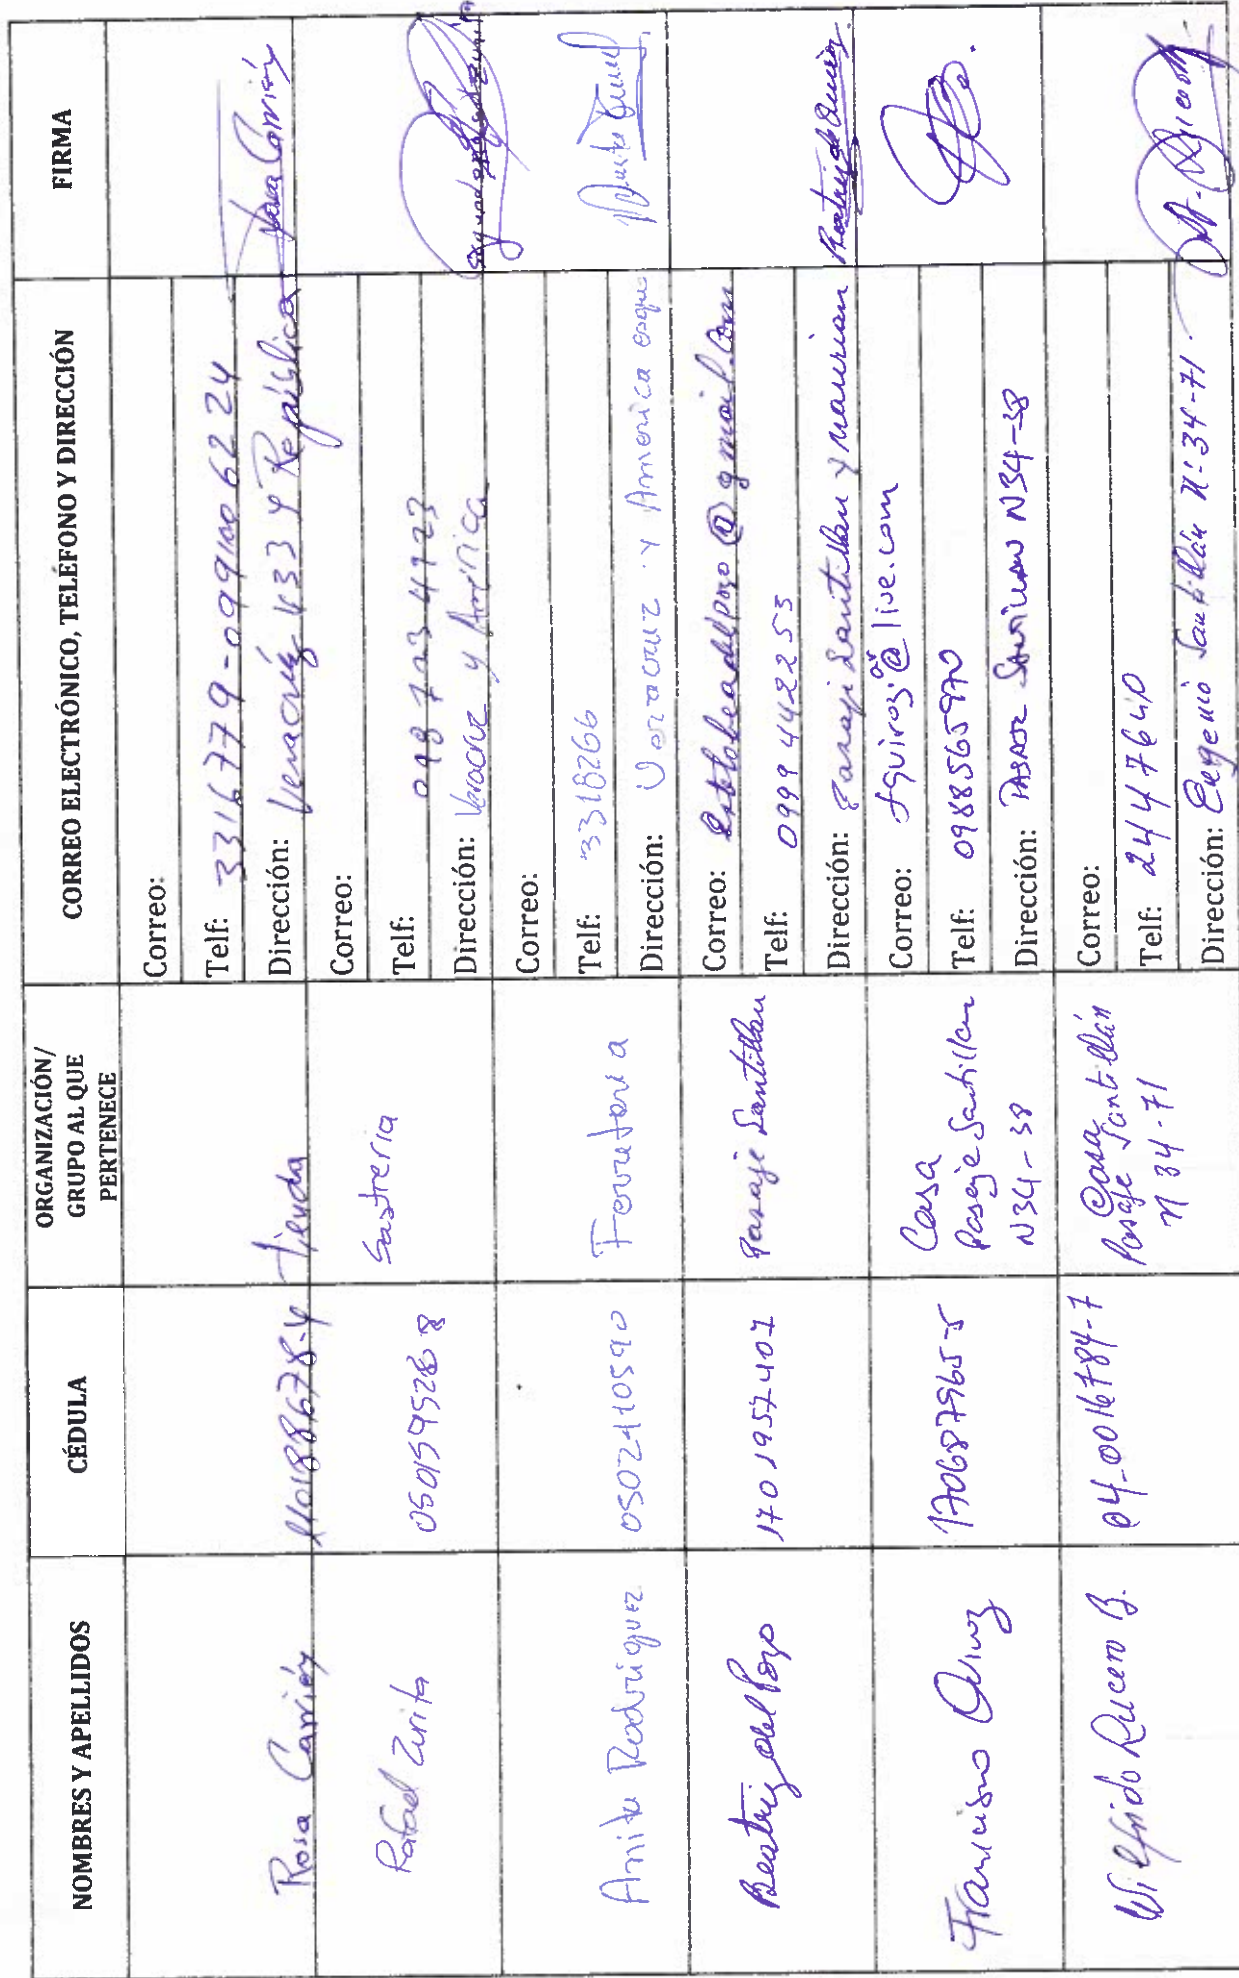 NOMBRES Y APELLIDOS
CÉDULA
ORGANIZACIÓN/
GRUPO AL QUE
PERTENECE
CORREO ELECTRÓNICO, TELÉFONO Y DIRECCIÓN
FIRMA
Rosa Carrión
110188678-4
Tienda
Correo:
Telf: 3316779-0991006224
Dirección: Veracruz 433 y República
Rosa Carrión
Rafael Zurita
0501595288
Sastreria
Correo:
Telf: 0987234723
Dirección: Veracruz y América
Anita Rodriguez
0502410590
Ferreteria
Correo:
Telf: 3318266
Dirección: Veracruz y America esque
Beatriz del Pozo
1701957407
Pasaje Santillan
Correo: @gmail.com
Telf: 0999442253
Dirección: Pasaje Santillan y
Beatriz de
Francisco Quiroz
170687965-5
Casa
Pasaje Santillan
N34-38
Correo: @live.com
Telf: 0988565970
Dirección: Pasaje Santillan N34-38
Wilfrido Lucero B.
04-0016784-7
Casa
Pasaje Santillán
N 34-71
Correo:
Telf: 2447640
Dirección: Eugenio Santillán N-34-71.